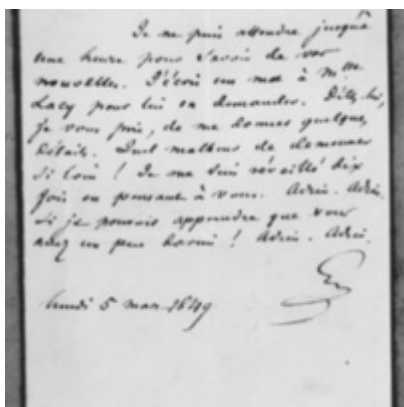 Je ne puis attendre jusqu'à
une heure pour savoir de vos
nouvelles. J'écris un mot à M. de
Lacy pour lui en demander. Dites-lui,
je vous prie, de me donner quelques
détails. Quel malheur de demeurer
si loin ! Je me suis réveillé dix
fois en pensant à vous. Adieu. Adieu.
Si je pouvais apprendre que vous
avez un peu dormi ! Adieu. Adieu.
lundi 5 mars 1849